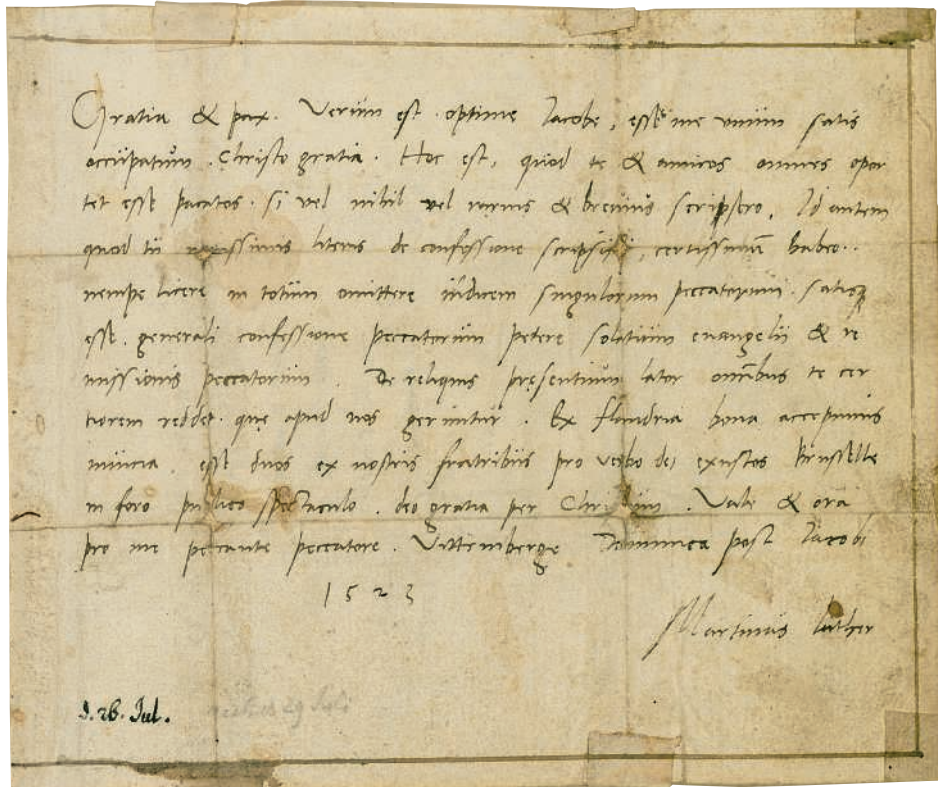 Gratia & pax. Verum est. optime Iacobe, esse me unum satis
occupatum. Christo gratia. Hoc est, quod te & amicos omnes opor
tet esse pacatos. si vel nihil vel rarius & brevius scripsero. Id autem
quod tu novissimis literis de confessione scripsisti, certissimū habeo..
nempe licere in totum omittere iudicem singulorum peccatorum. satisq
esse. generali confessione peccatorum petere solatium euangelii & re
missionis peccatorum. De reliquis pręsentium lator omībus te cer
tiorem reddet. quę apud nos geruntur. Ex flandria bona accepimus
nuncia esse duos ex nostris fratribus pro verbo dei exustos Brussellę
in foro publico spectaculo. deo gratia per Christum. Vale & ora
pro me peccante peccatore. Vittembergę Dominica post Iacobi
1523
Martinus Luther
d. 26. Jul.
29 Juli